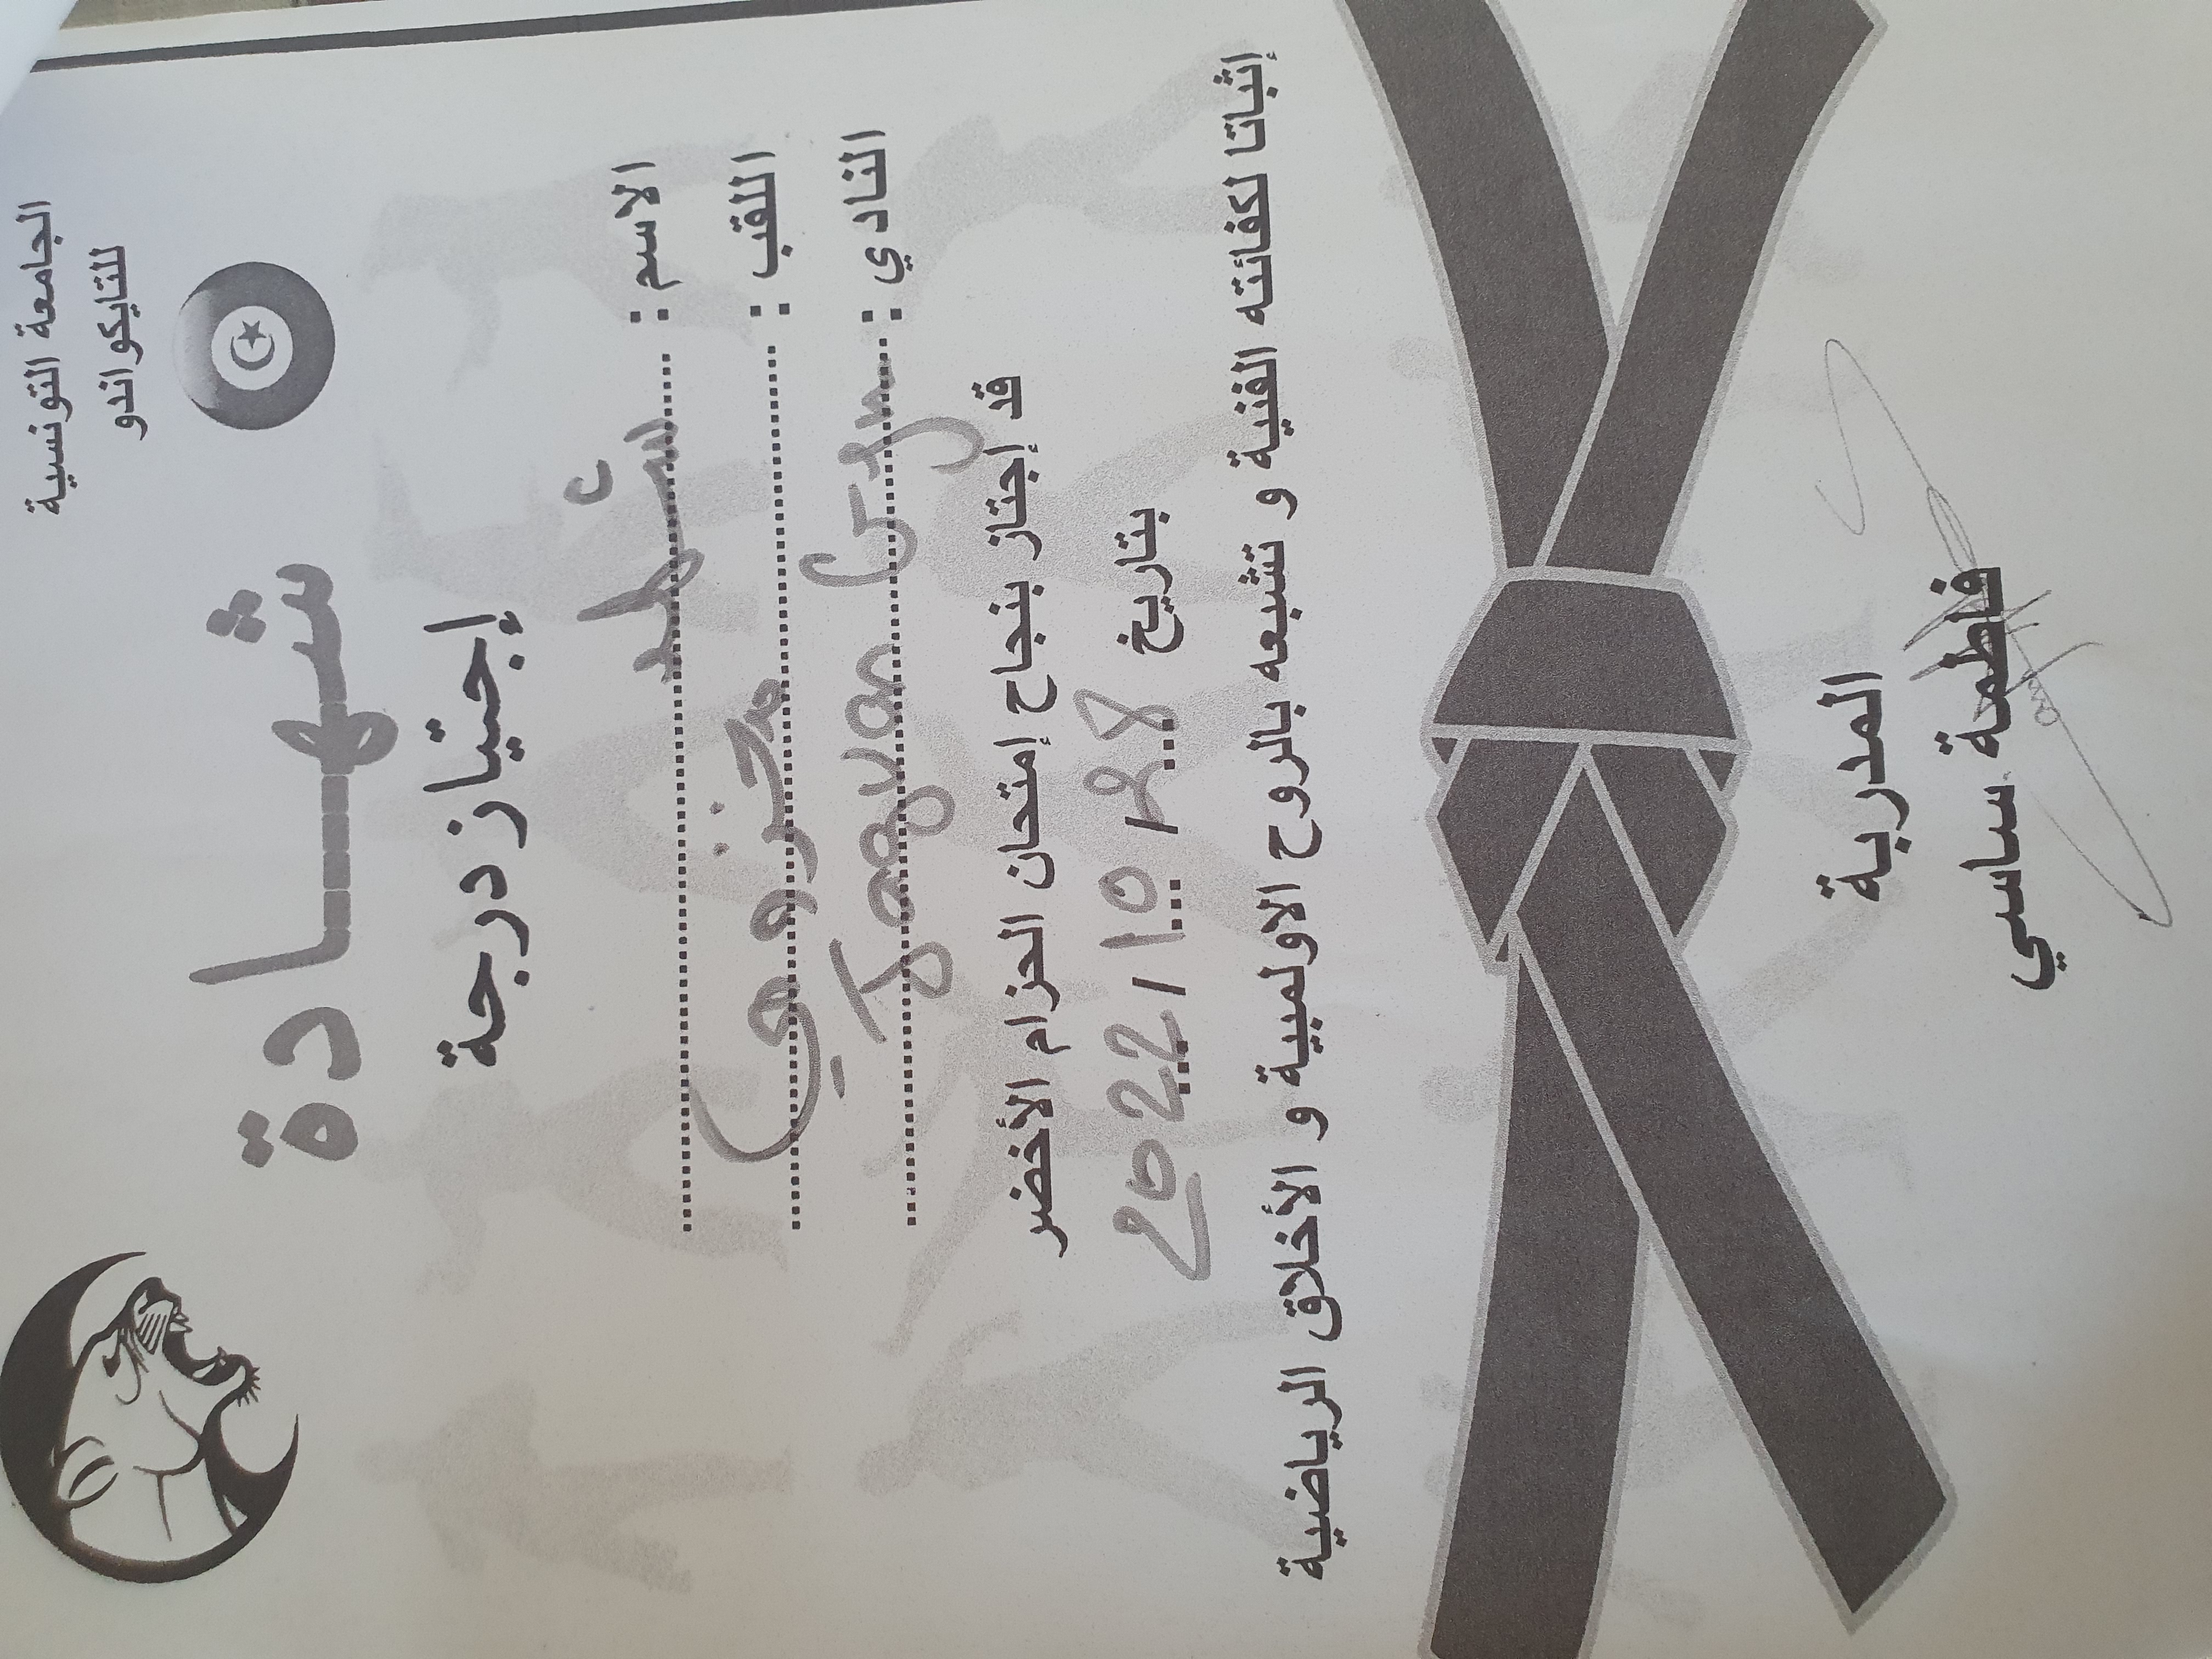 الجامعة التونسية
للتايكواندو
شهـــــادة
إجتياز درجة
الاسم :
اللقب :
النادي : Jaguar Gym
قد إجتاز بنجاح إمتحان الحزام الأخضر
بتاريخ 2022/10/28
إثباتا لكفائته الفنية و تشبعه بالروح الاولمبية و الأخلاق الرياضية
المدربة
فاطمة ساسي